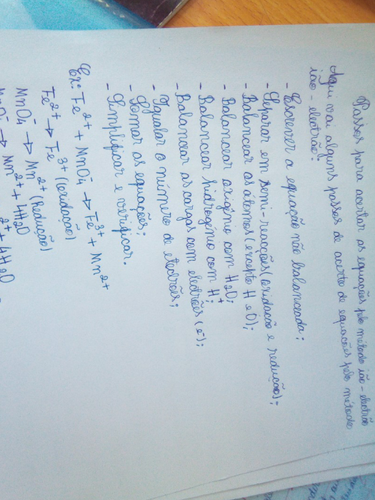 Passos para acertar as equações pelo método ião-eletrão
Aqui vai alguns passos de acerto de equações pelo método
ião-eletrão:
- Escrever a equação não balanceada;
- Separar em semi-reacções (oxidação e redução);
- Balancear os átomos (excepto H e O);
- Balancear oxigénio com H2O;
- Balancear hidrogénio com H+;
- Balancear as cargas com electrões (e-);
- Igualar o número de electrões;
- Somar as equações;
- Simplificar e verificar.
Ex: Fe2+ + MnO4 → Fe3+ + Mn2+
Fe2+ → Fe3+ (oxidação)
MnO4 → Mn2+ (Redução)
MnO4 → Mn2+ + 4H2O
2+ + 4H2O